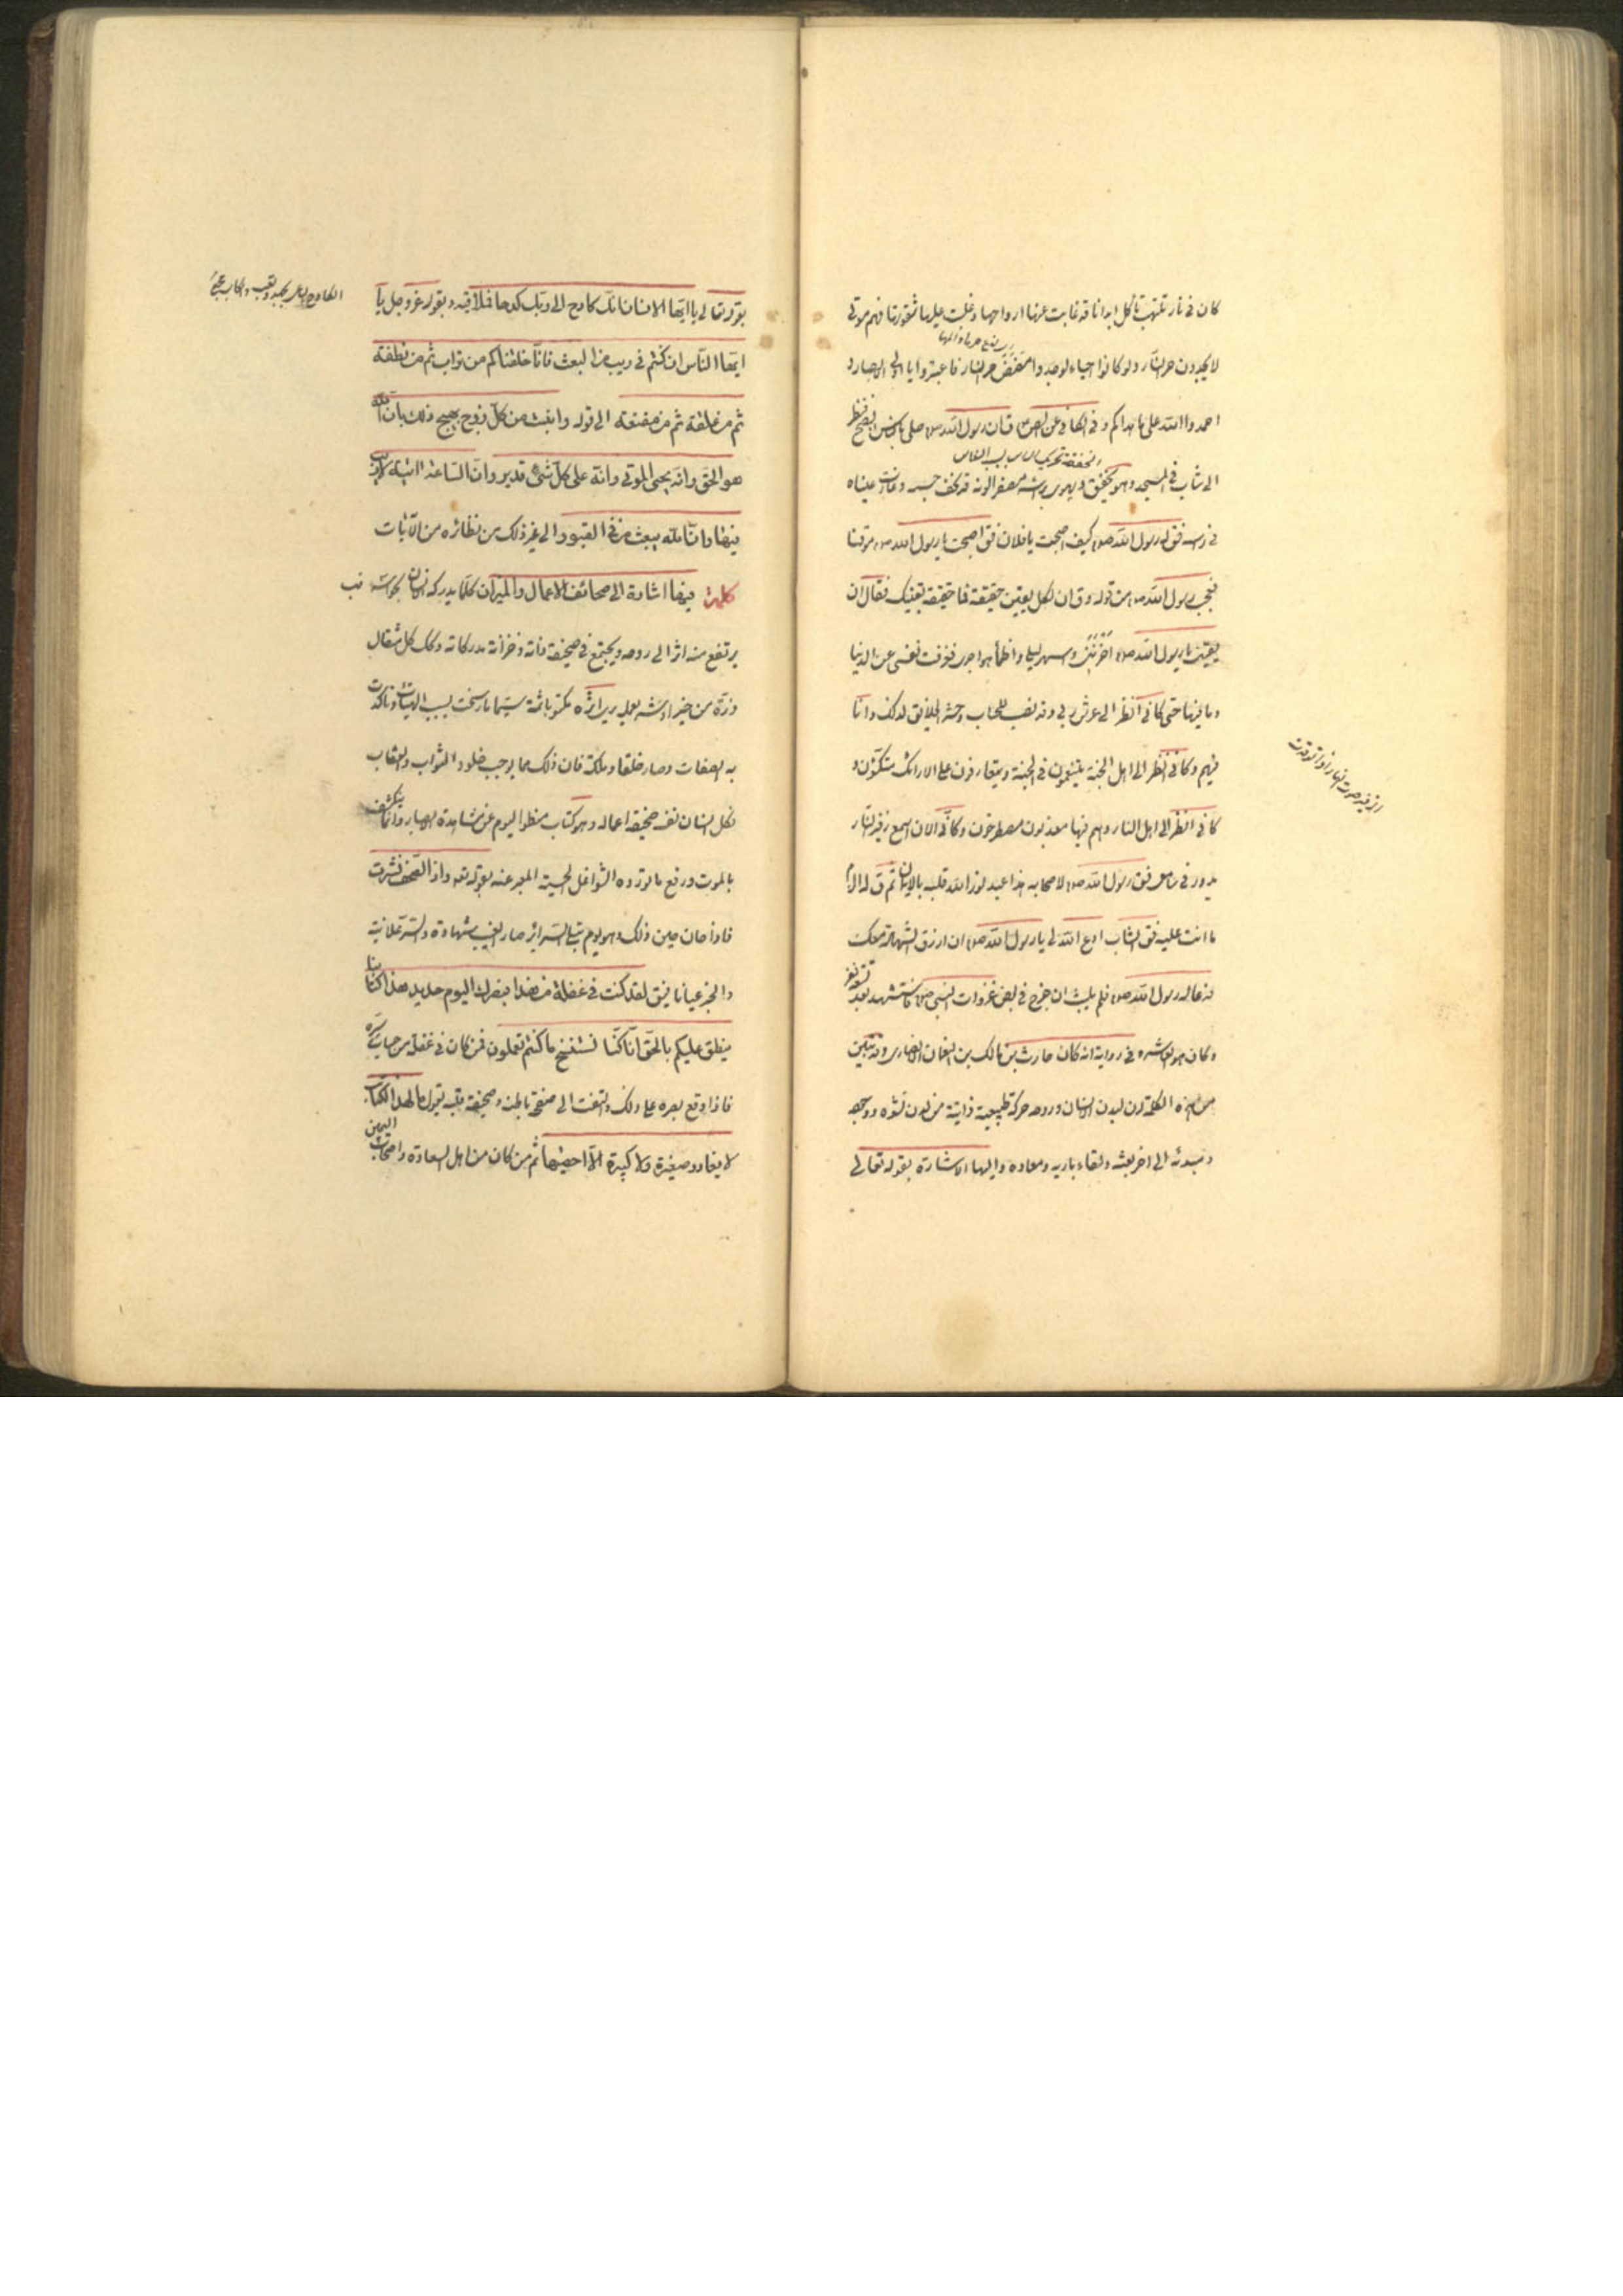 كان فى نار تلتهب تأكل ابدانا قد غابت عنها ارواحها وغلبت عليها شقوتها فهم موتى
لا يجدون حر النار ولو كانوا احياء لوجدوا مضض حر النار فاعتبروا يا اولى الابصار و
احمدوا الله على ما هداكم وفى الكافى عن الص قال ان رسول الله ص صلى بالناس الصبح فنظر
الى شاب فى المسجد وهو يخفق ويهوى برأسه مصفر الونه قد نحف جسمه وغارت عيناه
فى رأسه فق له رسول الله ص كيف اصبحت يا فلان فق اصبحت يا رسول الله ص موقنا
فعجب رسول الله ص من قوله وق ان لكل يقين حقيقة فما حقيقة يقينك فقال ان
يقينى يا رسول الله ص احزننى واسهر ليلى واظمأ هواجرى فعزفت نفسى عن الدنيا
وما فيها حتى كانى انظر الى عرش ربى وقد نصب للحساب وحشر الخلايق لذلك وانا
فيهم وكانى انظر الى اهل الجنة يتنعمون فى الجنة ويتعارفون على الارائك متكؤن و
كانى انظر الى اهل النار وهم فيها معذبون مصطرخون وكانى الان اسمع زفير النار
يدور فى مسامعى فق رسول الله ص لاصحابه هذا عبد نور الله قلبه بالايمان ثم ق له الزم
ما انت عليه فق الشاب ادع الله لى يا رسول الله ص ان ارزق الشهادة معك
فدعا له رسول الله ص فلم يلبث ان خرج فى بعض غزوات النبى ص فاستشهد بعد تسعة نفر
وكان هو العاشر وفى رواية انه كان حارث بن مالك بن النعمان الانصارى وقد تبين
من هذه الكلمة ان لبدن الانسان وروحه حركة طبيعية ذاتية من لدن نشوه و
ومبدئه الى اخر بعثه ولقاء باريه ومعاده واليها الاشارة بقوله تعالى
الزفير صوت النار اذا توقدت
بقوله تعالى يا ايها الانسان انك كادح الى ربك كدحا فملاقيه وبقوله عز وجل يا
ايها الناس ان كنتم فى ريب من البعث فانا خلقناكم من تراب ثم من نطفة
ثم من علقة ثم من مضغة الى قوله وانبتت من كل زوج بهيج ذلك بان الله
هو الحق وانه يحيى الموتى وانه على كل شئ قدير وان الساعة اتية لا ريب
فيها وان الله يبعث من فى القبور الى غير ذلك من نظائره من الآيات
كلمة فيها اشارة الى صحائف الاعمال والميزان كلما يدركه الانسان بحواسه
يرتفع منه اثر الى روحه ويجتمع فى صحيفة ذاته وخزانة مدركاته وكك كل مثقال
ذرة من خير او شر يعمله يرى اثره مكتوبا ثمة سيما ما رسخت بسببه الهيئات وتاكدت
به الصفات وصار خلقا وملكة فان ذلك مما يوجب خلود الثواب والعقاب
فكل انسان نفسه صحيفة اعماله وهو كتاب منطو اليوم عن مشاهدة الابصار وانما ينكشف
بالموت ورفع ما تورده الشواغل الحسية المعبر عنه بقوله تعه واذا الصحف نشرت
فاذا حان حين ذلك وهو يوم تبلى السرائر صار الغيب شهادة والسر علانية
والخبر عيانا فيق لقد كنت فى غفلة من هذا فبصرك اليوم حديد هذا كتابنا
ينطق عليكم بالحق انا كنا نستنسخ ما كنتم تعملون فمن كان فى غفلة
فاذا وقع بصره على ذلك والتفت الى صفحة باطنه وصحيفة قلبه يقول ما لهذا الكتاب
لا يغادر صغيرة ولا كبيرة الا احصيها ثم من كان من اهل السعادة واصحاب اليمين